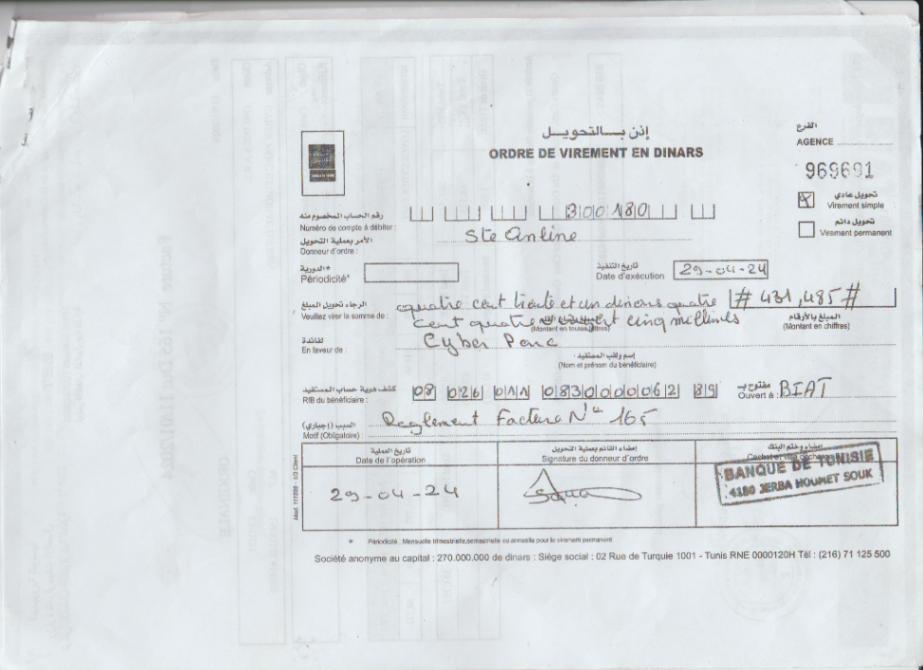 إذن بـــالتحويـــل
ORDRE DE VIREMENT EN DINARS
الفرع
AGENCE
969691
تحويل عادي
Virement simple
تحويل دائم
Virement permanent
رقم الحساب المخصوم منه
Numéro de compte à débiter :
300180
الأمر بعملية التحويل
Donneur d'ordre :
Ste Online
الدورية*
Périodicité*
تاريخ التنفيذ
Date d'exécution
29-04-24
الرجاء تحويل المبلغ
Veuillez virer la somme de :
quatre cent trente et un dinars quatre
# 431,485 #
cent quatre cinq millimes
(Montant en toutes lettres)
المبلغ بالأرقام
(Montant en chiffres)
لفائدة
En faveur de :
Cyber Parc
إسم ولقب المستفيد
(Nom et prénom du bénéficiaire)
كشف هوية حساب المستفيد
RIB du bénéficiaire :
08 026 011 0830000062 89
مفتوح بـ
Ouvert à :
BIAT
السبب (إجباري)
Motif (Obligatoire) :
Reglement Facture N° 165
تاريخ العملية
Date de l'opération
29-04-24
إمضاء القائم بعملية التحويل
Signature du donneur d'ordre
إمضاء وختم البنك
BANQUE DE TUNISIE
4180 JERBA HOUMET SOUK
* Périodicité : Mensuelle trimestrielle, semestrielle ou annuelle pour le virement permanent
Société anonyme au capital : 270.000.000 de dinars : Siège social : 02 Rue de Turquie 1001 - Tunis RNE 0000120H Tél : (216) 71 125 500